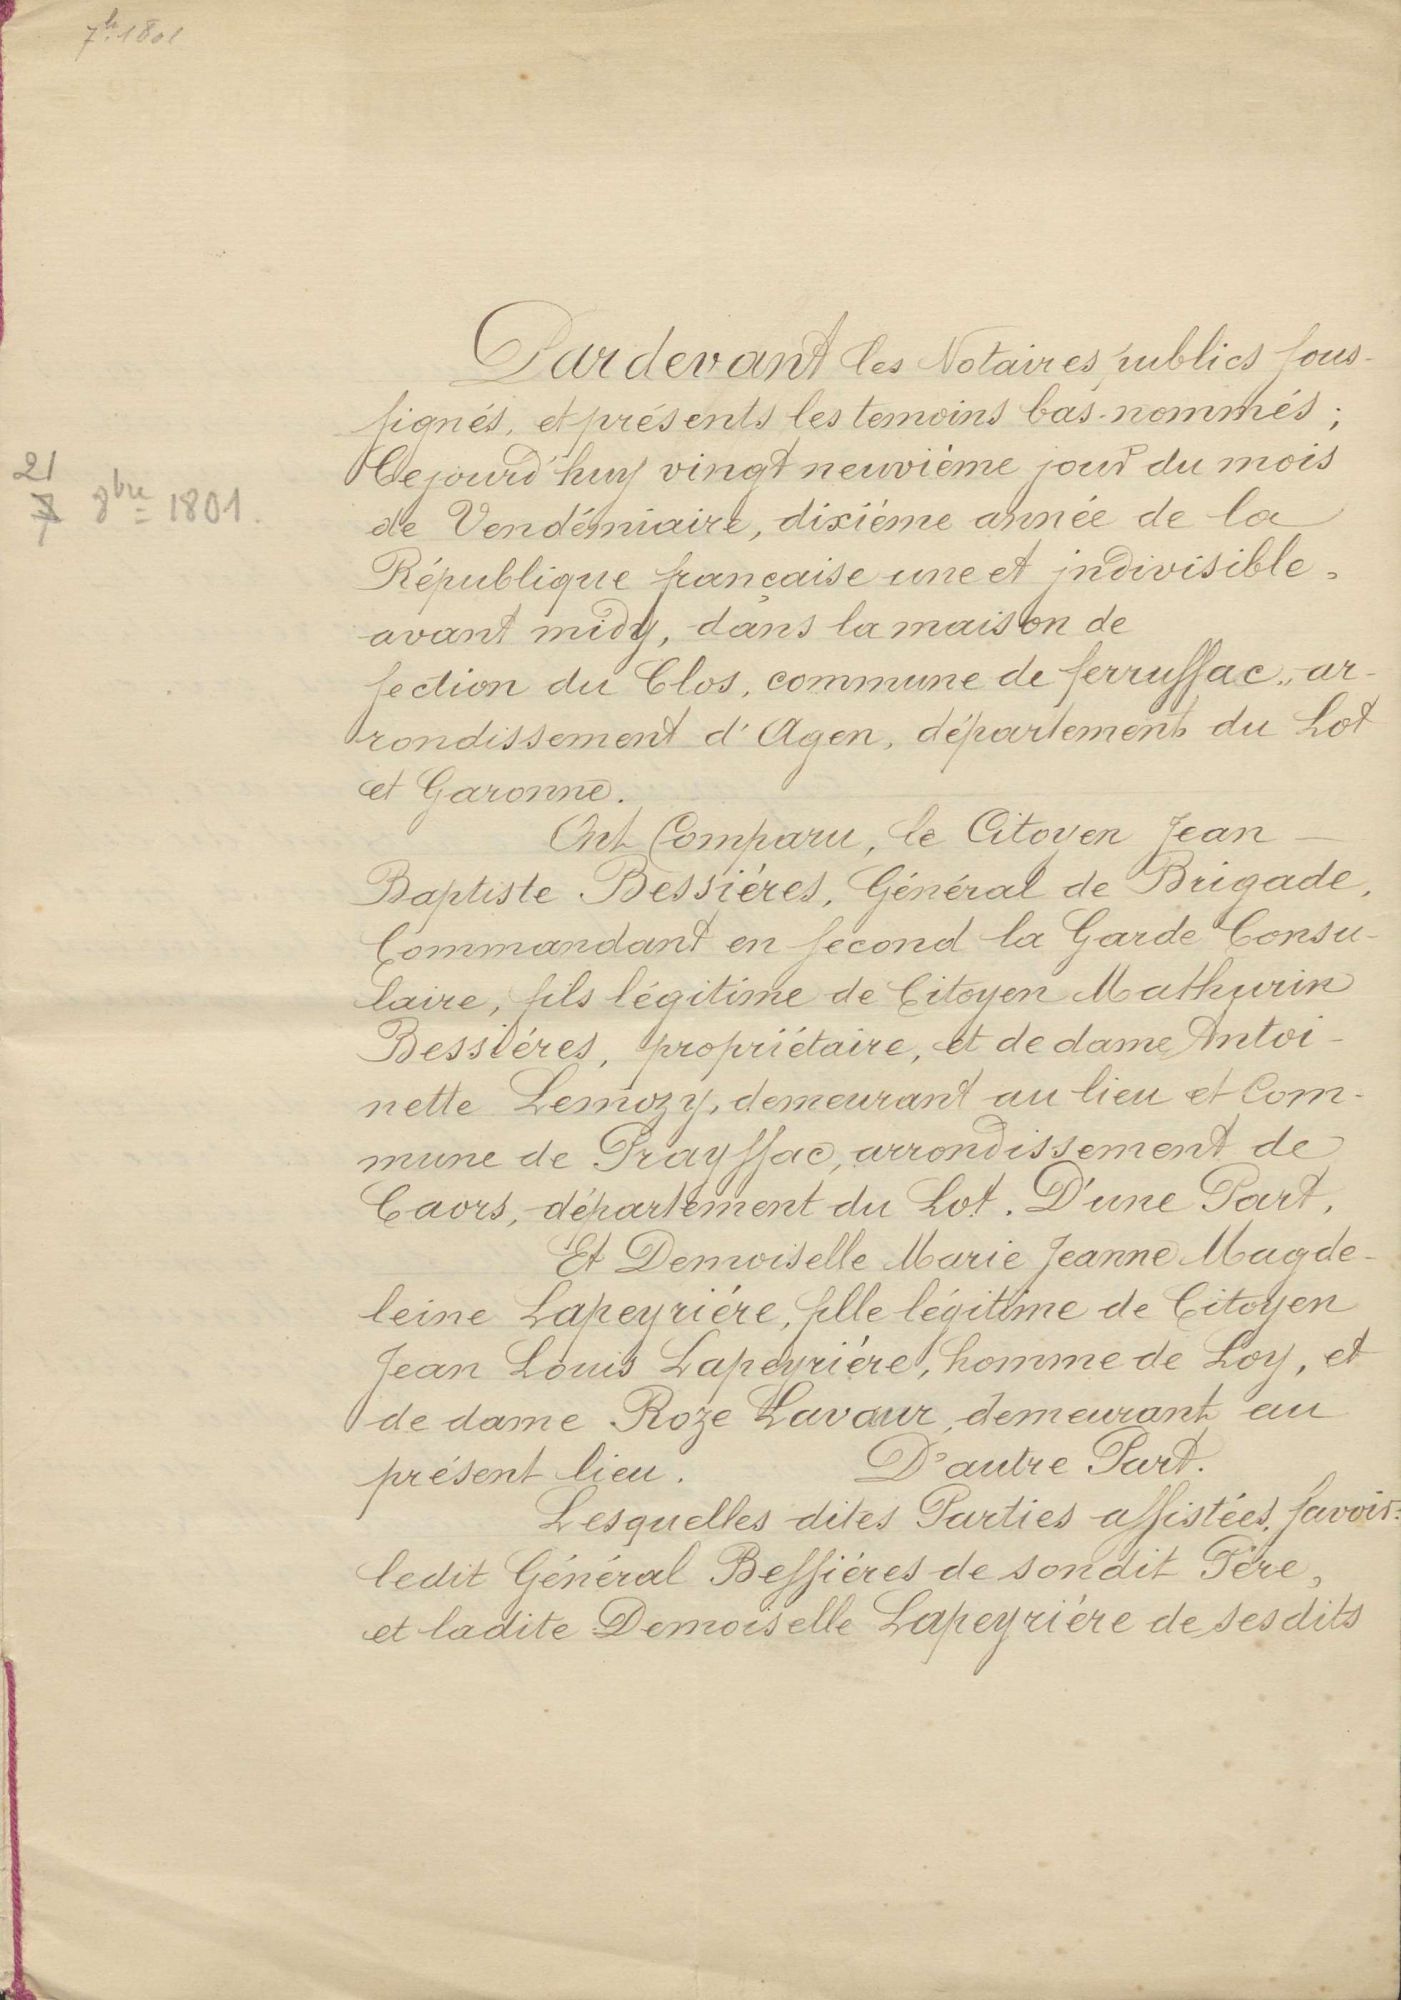 7bre 1801
Pardevant les Notaires publics sous-
signés, et présents les temoins bas-nommés ;
Cejourd'huy vingt neuvième jour du mois
21
8bre = 1801.
de Vendémiaire, dixiéme année de la
République française une et indivisible,
avant midy, dans la maison de
section du Clos, commune de ferrussac, ar-
rondissement d'Agen, département du Lot
et Garonne.
Ont Comparu, le Citoyen Jean
Baptiste Bessiéres, Général de Brigade,
Commandant en second la Garde Consu-
laire, fils légitime de Citoyen Mathurin
Bessiéres, propriétaire, et de dame Antoi-
nette Lemozy, demeurant au lieu et Com-
mune de Prayssac, arrondissement de
Caors, département du Lot. D'une Part,
Et Demoiselle Marie Jeanne Magde-
leine Lapeyriére, fille légitime de Citoyen
Jean Louis Lapeyriére, homme de Loy, et
de dame Roze Lavaur, demeurant au
présent lieu. D'autre Part.
Lesquelles dites Parties assistées, savoir:
ledit Général Bessiéres de sondit Père,
et ladite Demoiselle Lapeyriére de sesdits